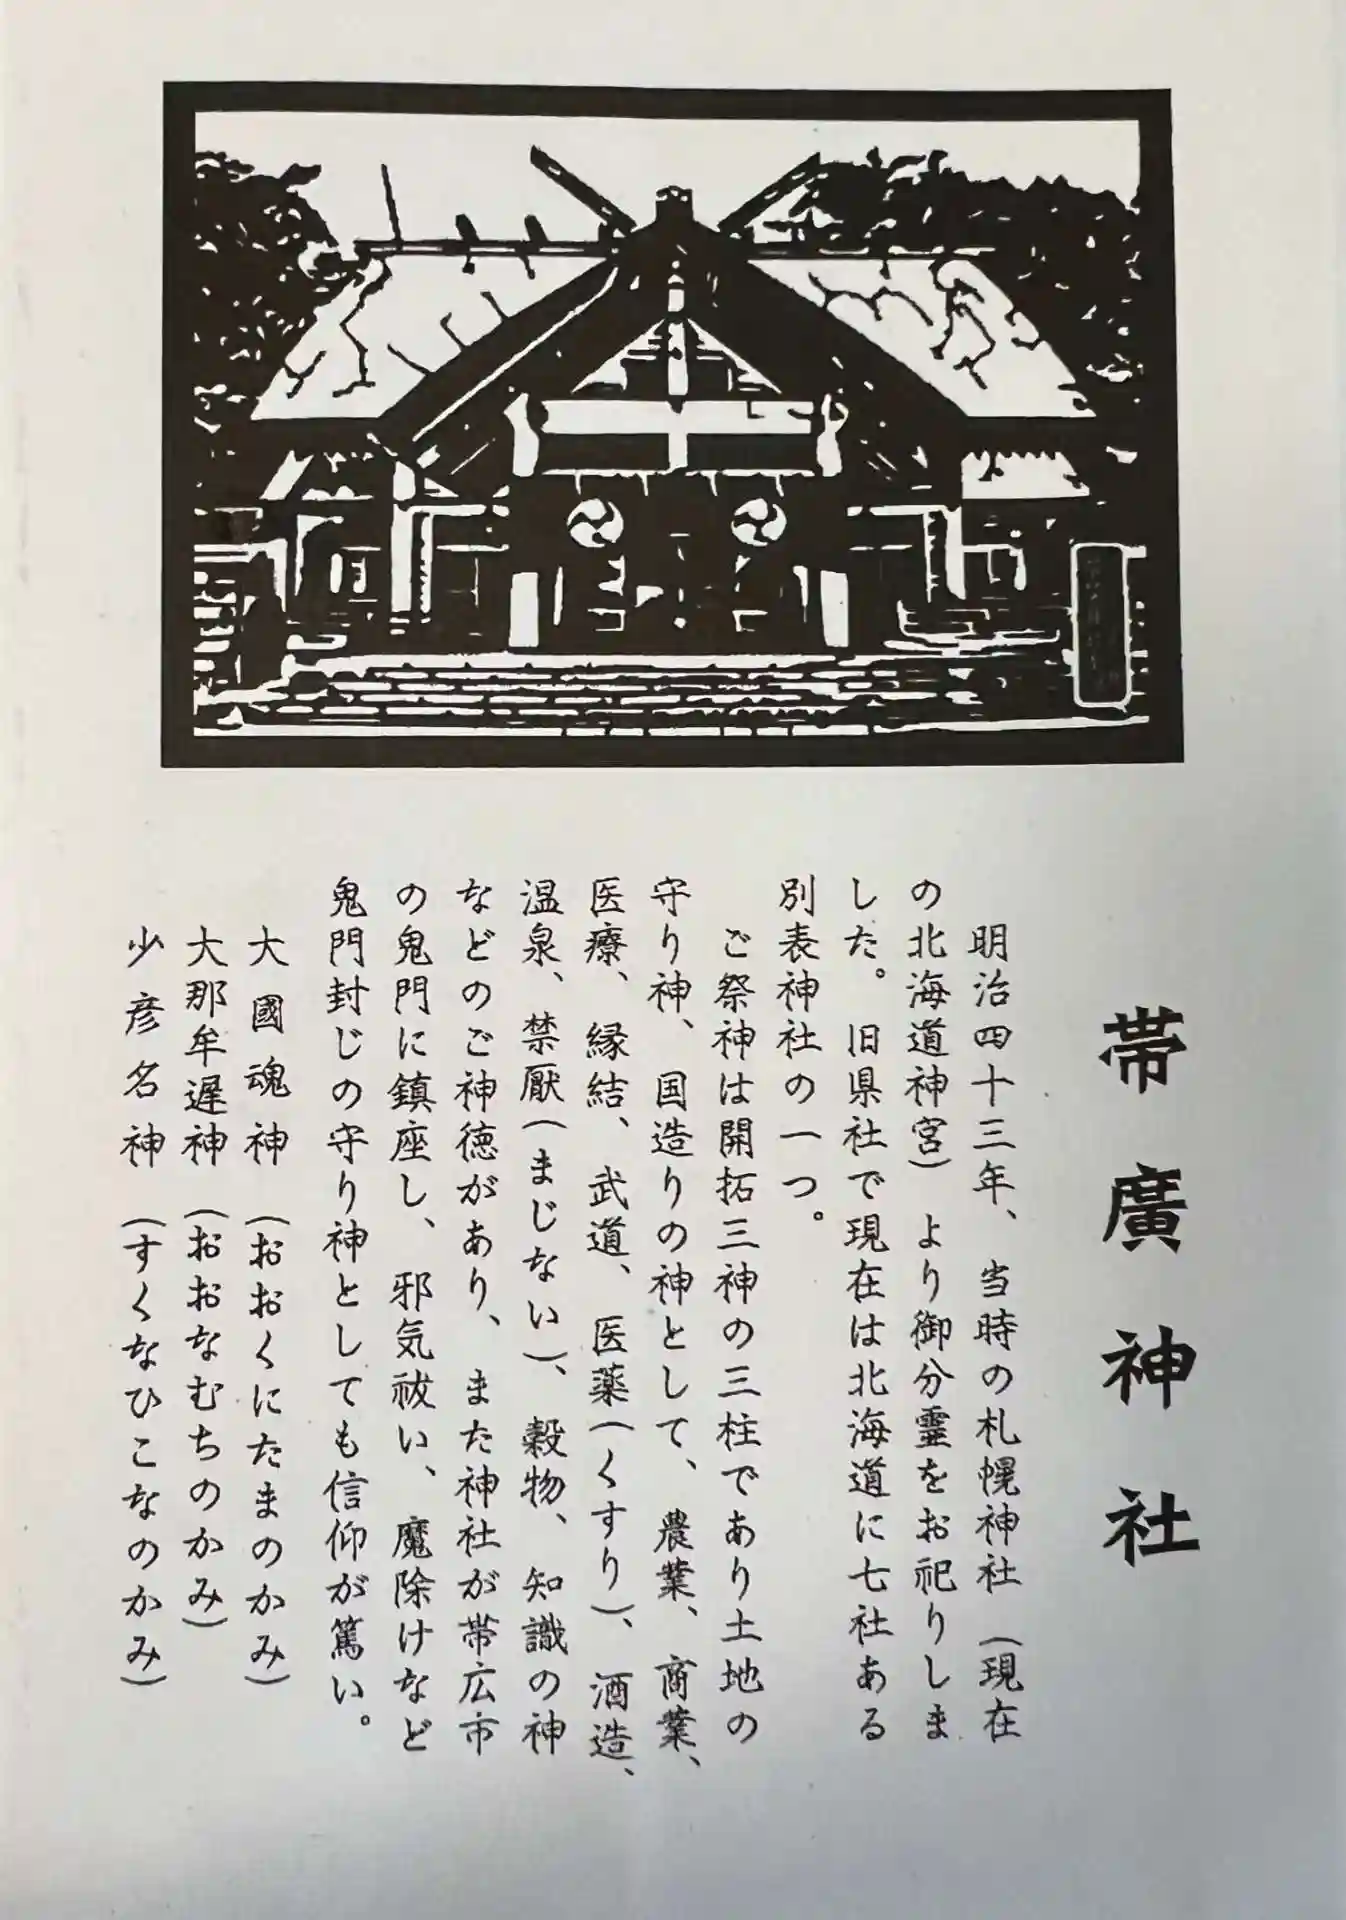 帯廣神社
明治四十三年、当時の札幌神社（現在
の北海道神宮）より御分霊をお祀りしま
した。旧県社で現在は北海道に七社ある
別表神社の一つ。
ご祭神は開拓三神の三柱であり土地の
守り神、国造りの神として、農業、商業、
医療、縁結、武道、医薬（くすり）、酒造、
温泉、禁厭（まじない）、穀物、知識の神
などのご神徳があり、また神社が帯広市
の鬼門に鎮座し、邪気祓い、魔除けなど
鬼門封じの守り神としても信仰が篤い。
大國魂神（おおくにたまのかみ）
大那牟遅神（おおなむちのかみ）
少彦名神（すくなひこなのかみ）